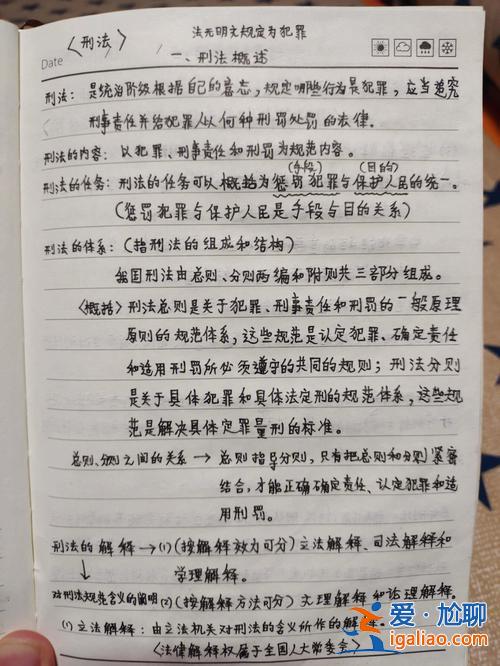 〈刑法〉
法无明文规定为犯罪
Date
一、刑法概述
刑法：是统治阶级根据自己的意志，规定哪些行为是犯罪，应当追究
刑事责任并给犯罪人以何种刑罚处罚的法律.
刑法的内容：以犯罪、刑事责任和刑罚为规范内容。
(手段) (目的)
刑法的任务：刑法的任务可以概括为惩罚犯罪与保护人民的统一。
(惩罚犯罪与保护人民是手段与目的关系)
刑法的体系：(指刑法的组成和结构)
我国刑法由总则、分则两编和附则共三部分组成。
〈概括〉刑法总则是关于犯罪、刑事责任和刑罚的一般原理
原则的规范体系，这些规范是认定犯罪、确定责任
和适用刑罚所必须遵守的共同的规则；刑法分则
是关于具体犯罪和具体法定刑的规范体系，这些规
范是解决具体定罪量刑的标准。
总则、分则之间的关系→总则指导分则，只有把总则和分则紧密
结合，才能正确确定责任、认定犯罪和适
用刑罚。
刑法的解释→(1)(按解释效力可分)立法解释、司法解释和
学理解释。
↓
对刑法规范含义的阐明 (2)(按解释方法可分)文理解释和论理解释。
(1)立法解释：由立法机关对刑法的含义所作的解释.
〈法律解释权属于全国人大常委会〉
爱·尬聊
ingaliao.com